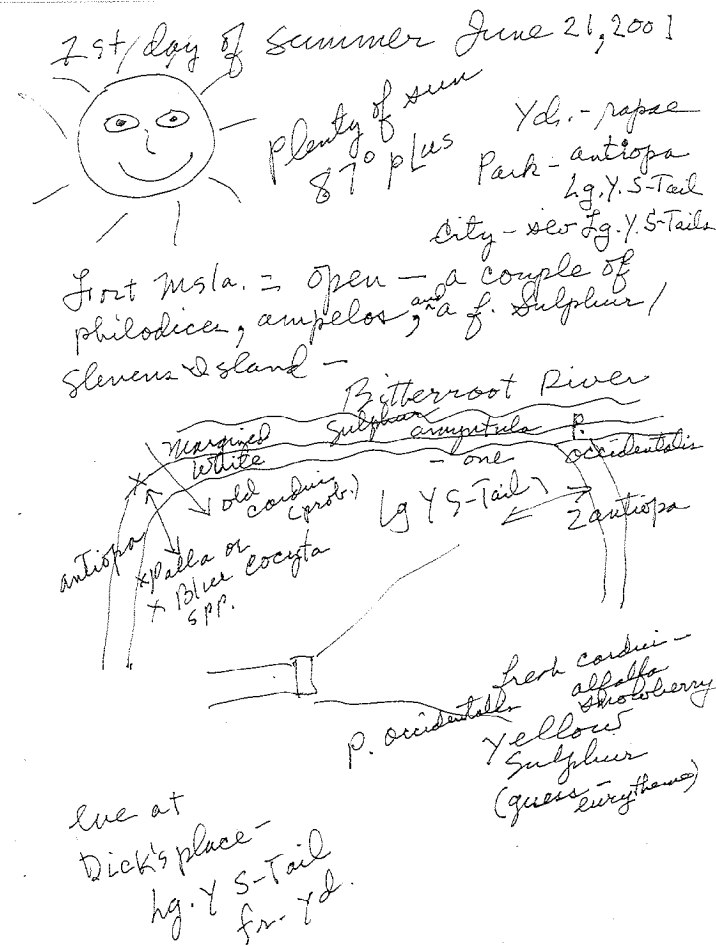 1st/day of Summer June 21, 2001
plenty of sun
87° plus
Yd. - rapae
Park - antiopa
Lg. Y. S-Tail
City - sev Lg. Y. S-Tails
Fort Msla. = open - a couple of
philodices, ampelos, and a f. Sulphur/
Stevens Island -
Bitterroot River
Margined
White
Sulphur
amyntula
- one
P.
occidentalis
old
cardui
(prob.)
Lg Y S-Tail
2 antiopa
antiopa
x Palla or
x Blue cocyta
spp.
fresh cardui -
alfalfa
snowberry
p. occidentalis
Yellow
Sulphur
(guess -
eurytheme)
eve at
Dick's place -
Lg. Y S-Tail
fr. yd.